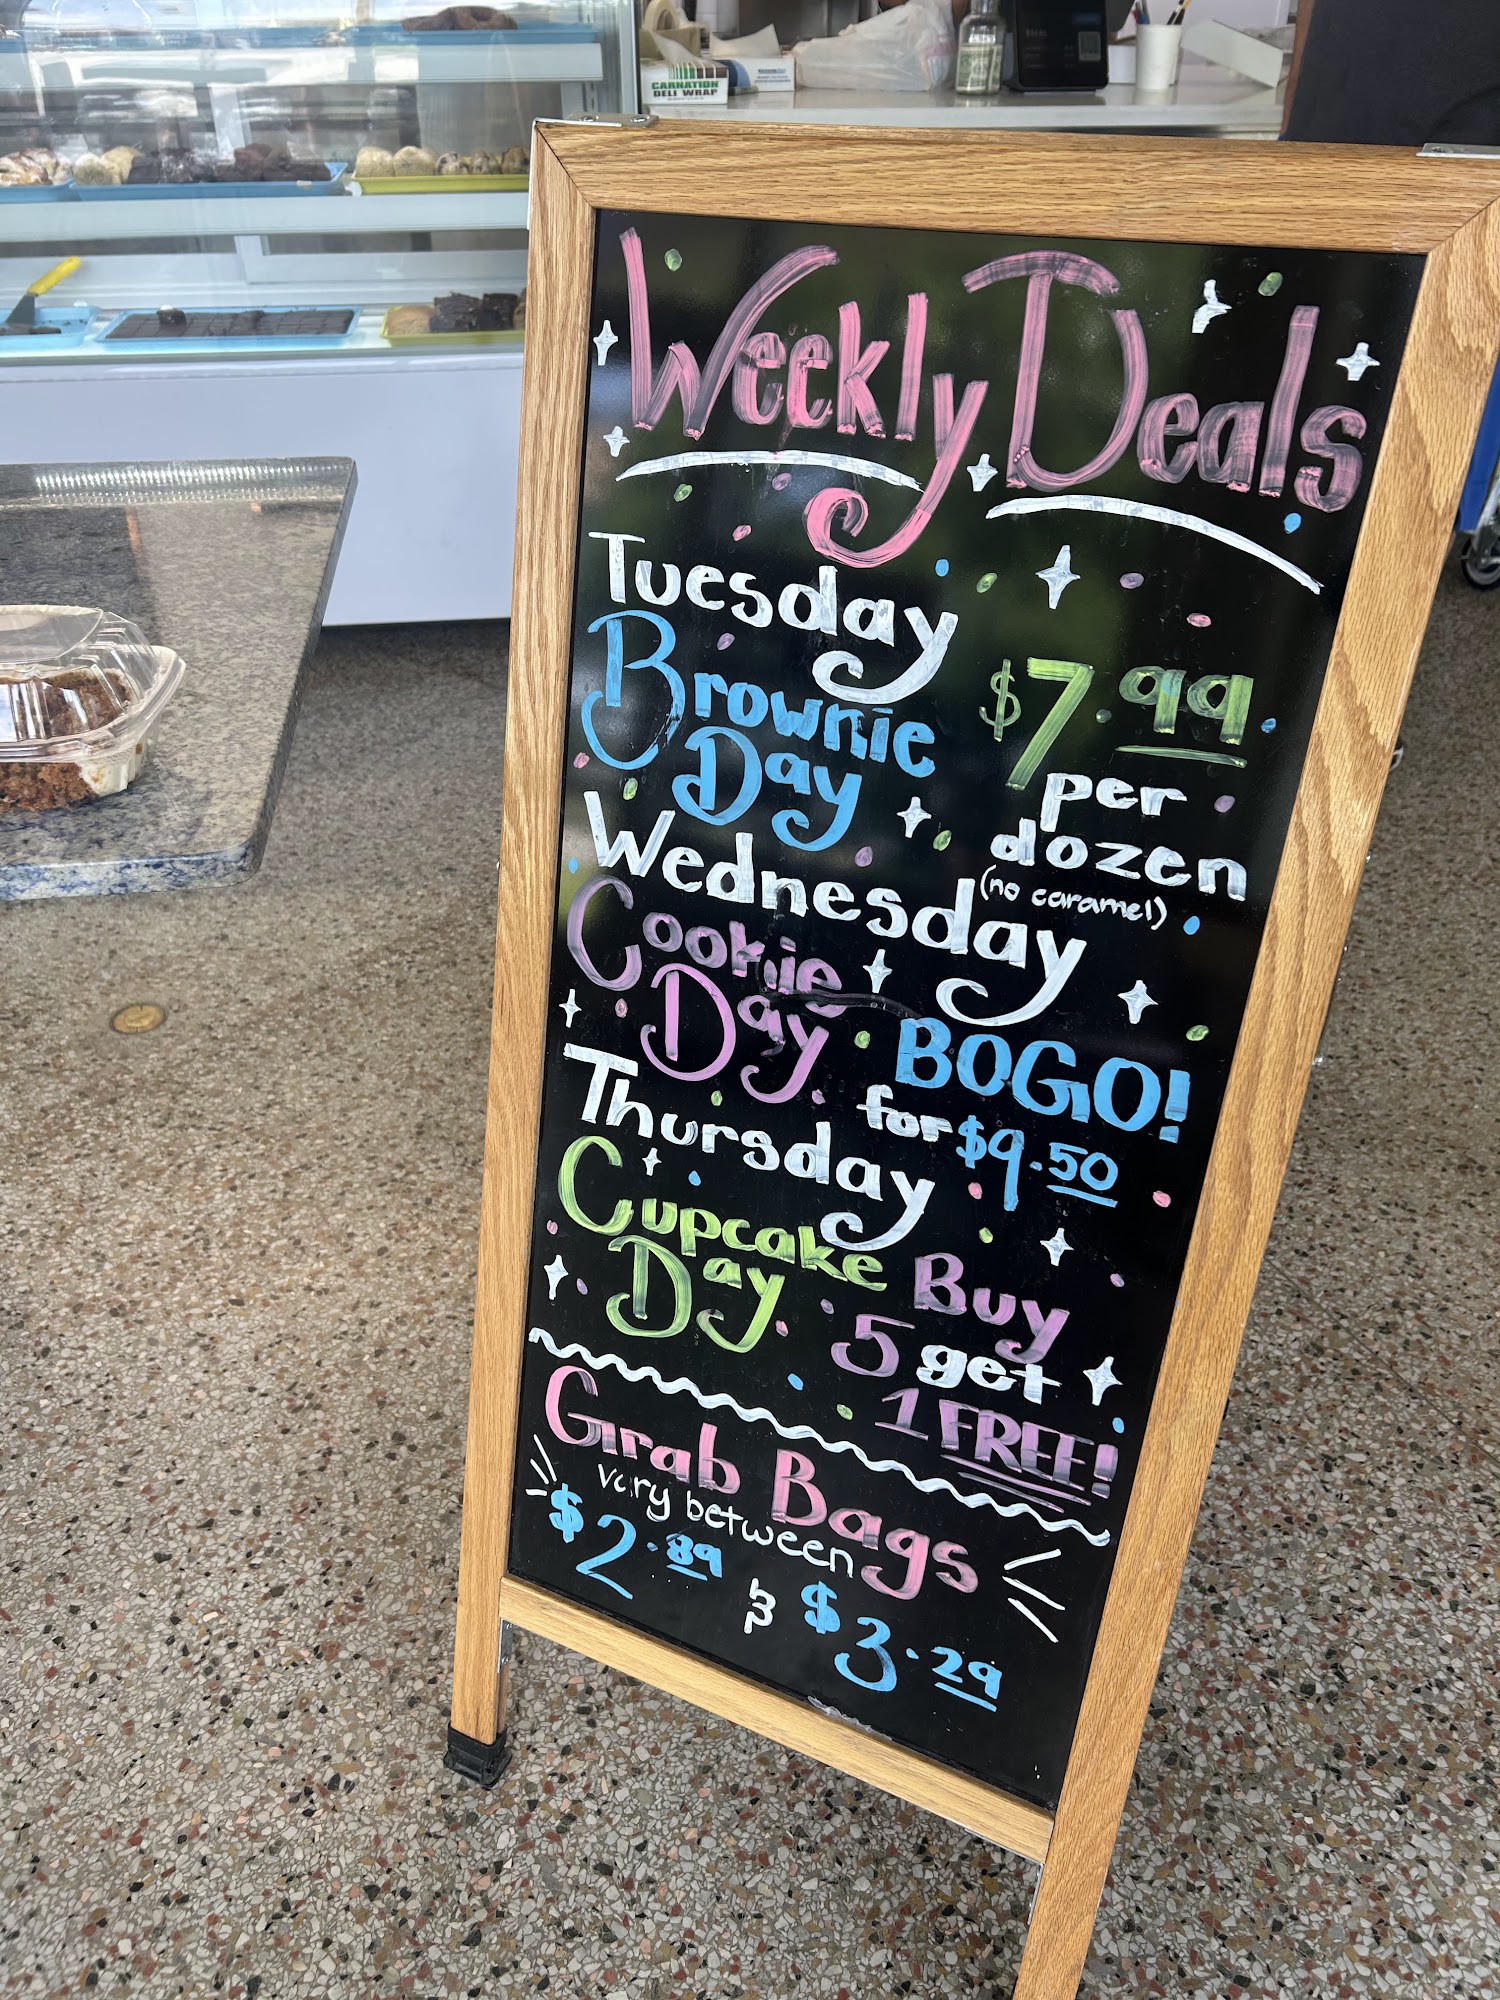 CARNATION
DELI WRAP
Weekly Deals
Tuesday
Brownie
Day
$7.99
per
dozen
(no caramel)
Wednesday
Cookie
Day
BOGO!
for $9.50
Thursday
Cupcake
Day
Buy
5 get
1 FREE!
Grab Bags
vary between
$2.89 & $3.29